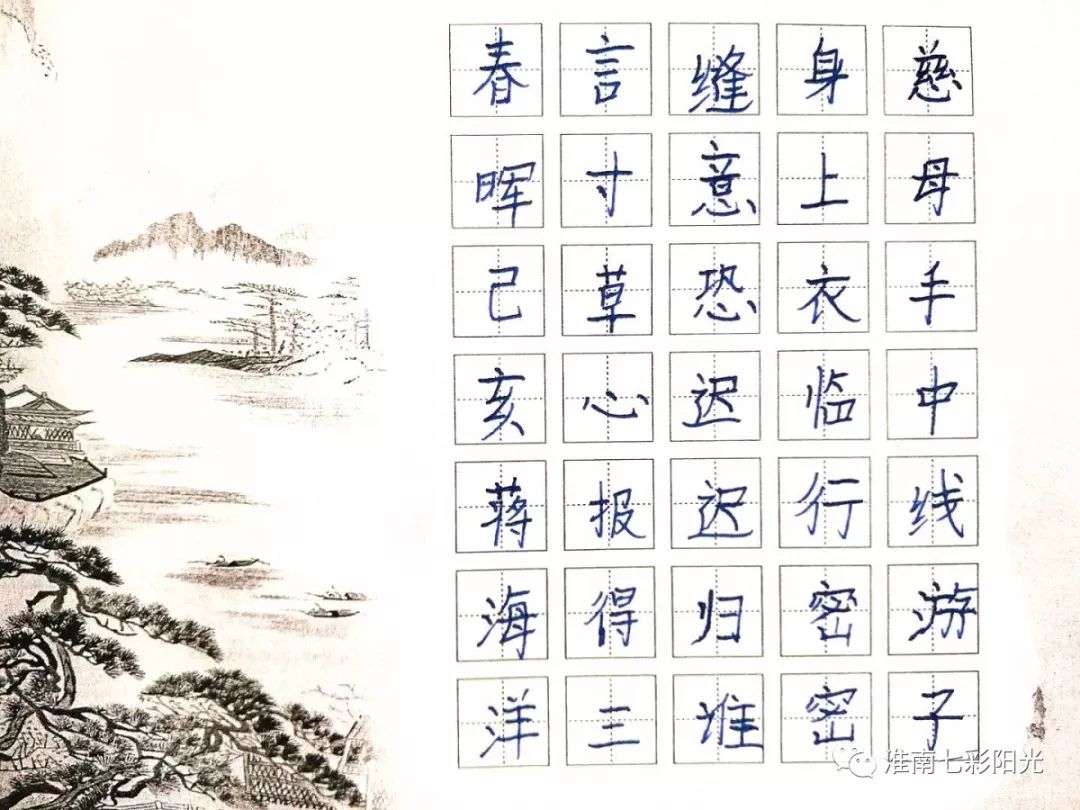 慈母手中线游子
身上衣临行密密
缝意恐迟迟归谁
言寸草心报得三
春晖己亥蒋海洋
淮南七彩阳光